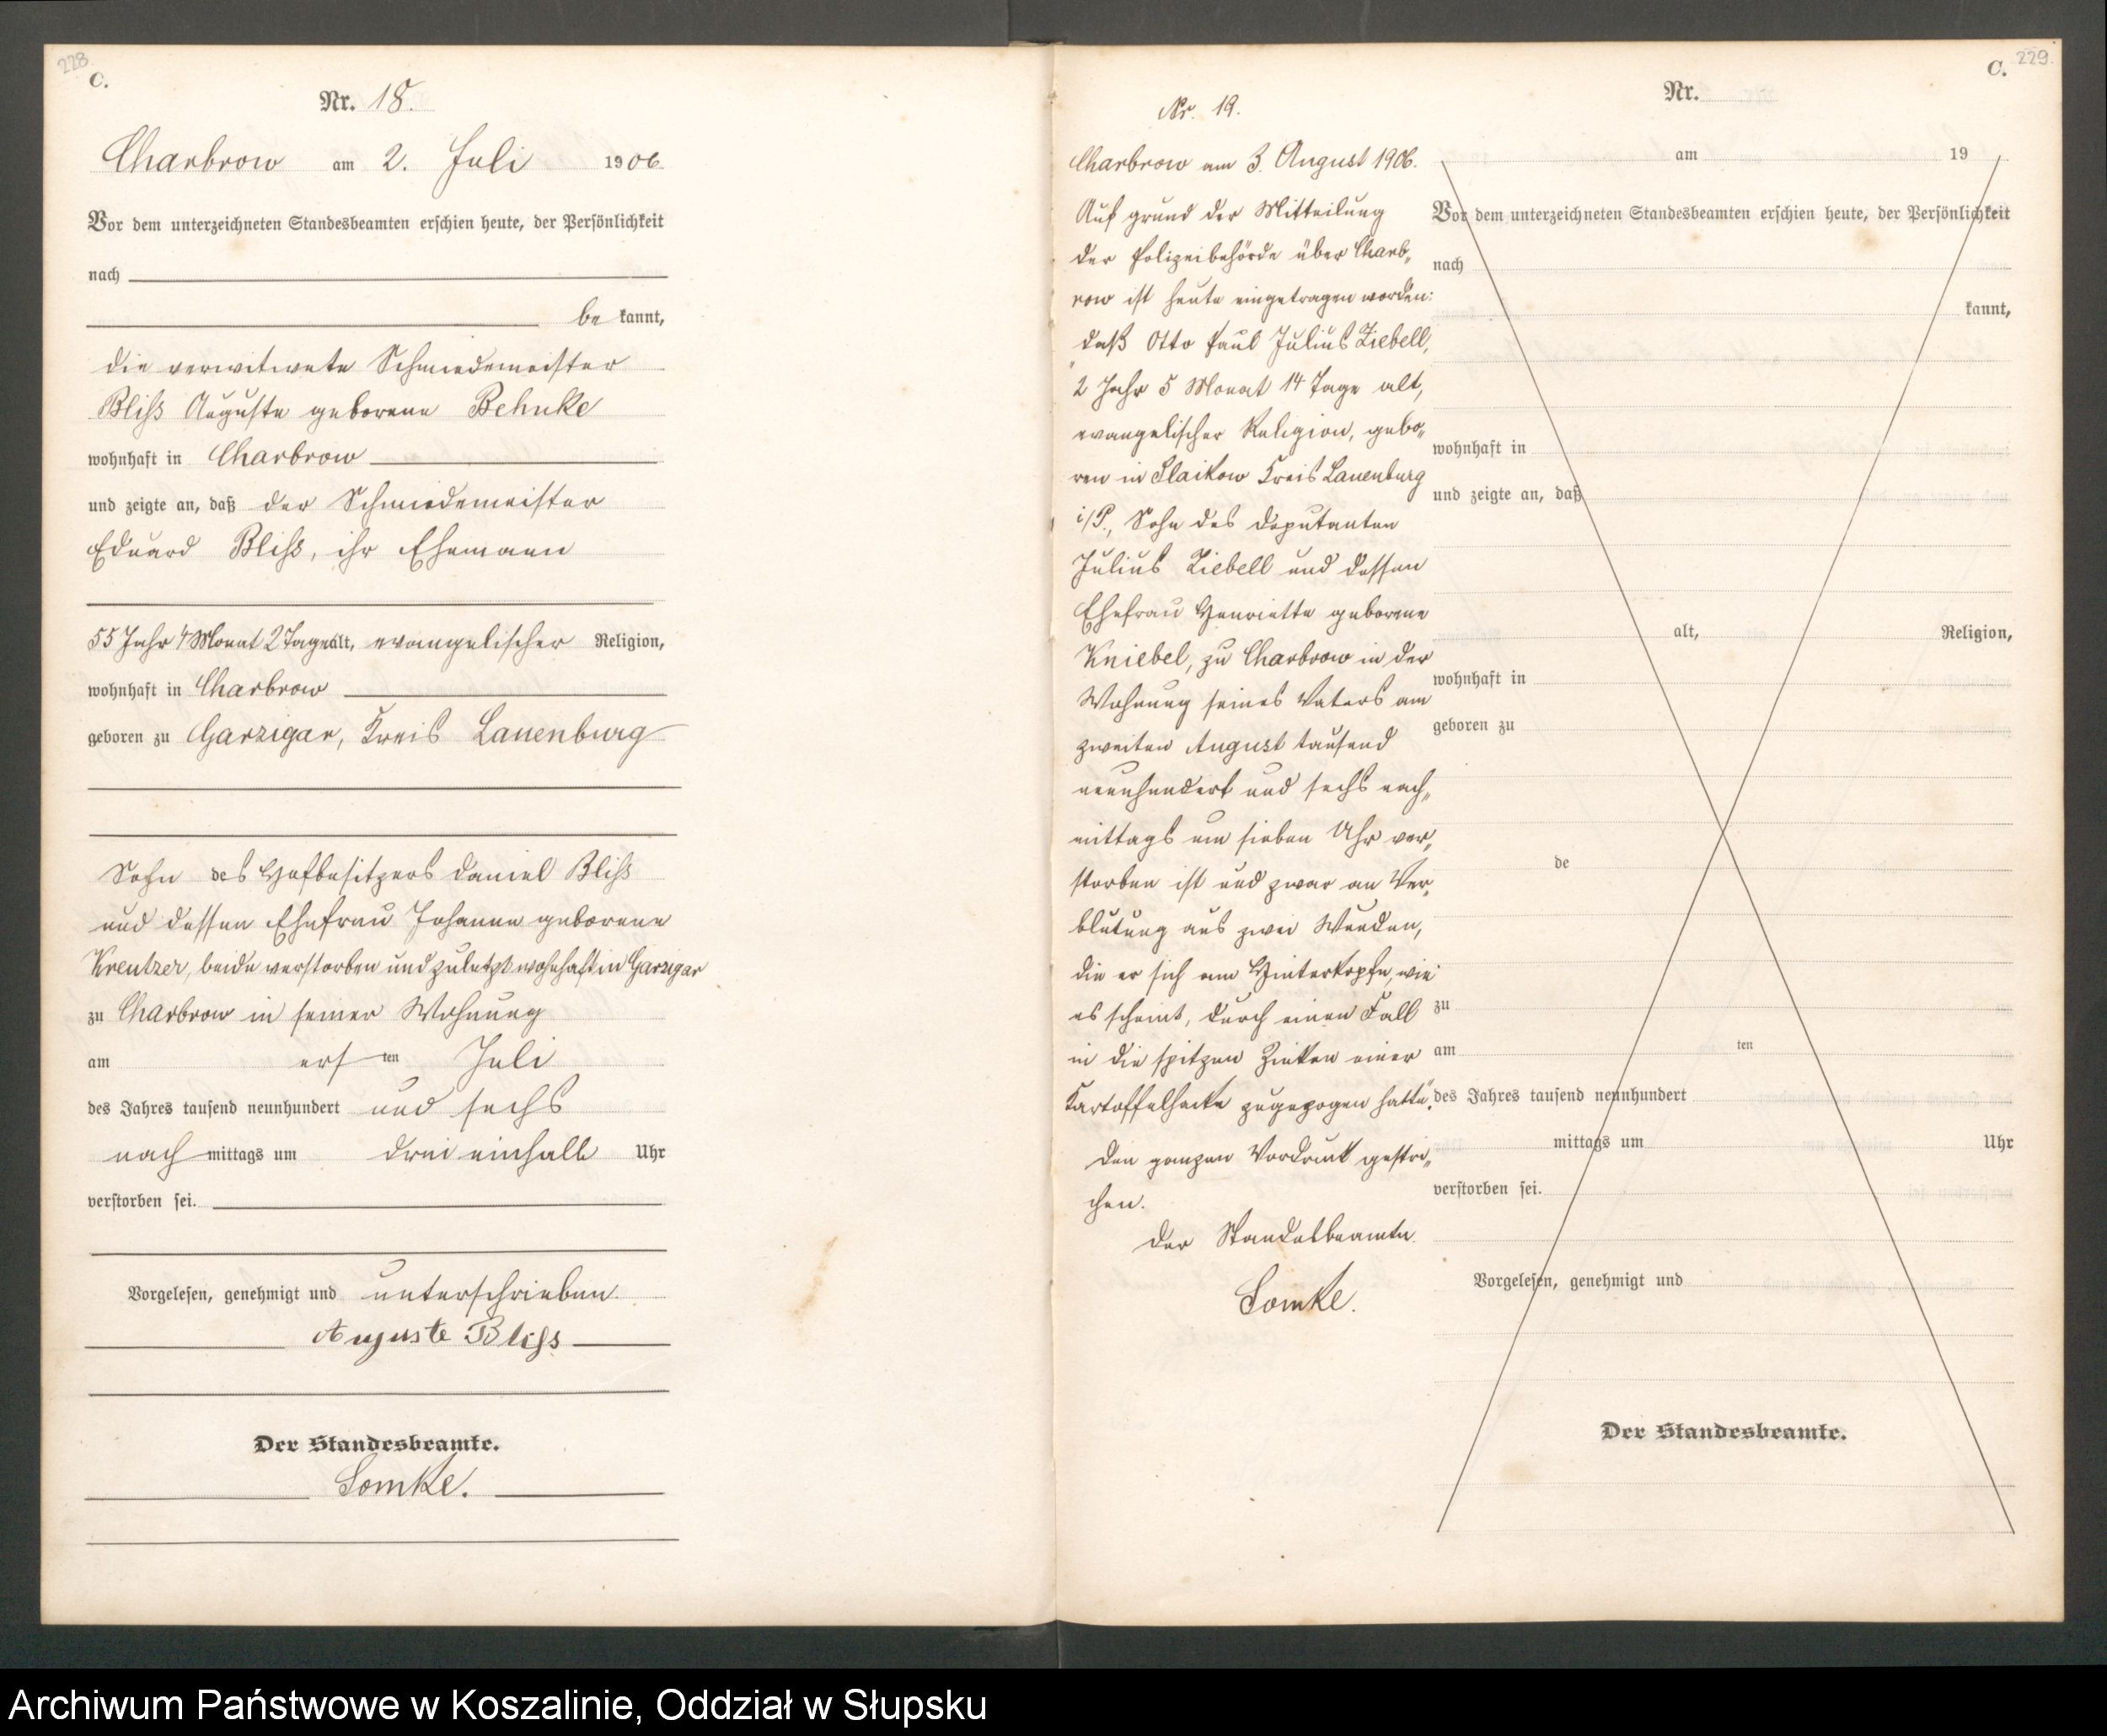 228
C.
Nr. 18.
Charbrow am 2. Juli 1906.
Vor dem unterzeichneten Standesbeamten erschien heute, der Persönlichkeit
nach
be kannt,
die verwitwete Schmiedemeister
Bliß Auguste geborene Behnke
wohnhaft in Charbrow
und zeigte an, daß der Schmiedemeister
Eduard Bliß, ihr Ehemann
55 Jahr 4 Monat 2 Tage alt, evangelischer Religion,
wohnhaft in Charbrow
geboren zu Garzigar, Kreis Lauenburg
Sohn des Hofbesitzers Daniel Bliß
und dessen Ehefrau Johanne geborene
Kreutzer, beide verstorben und zuletzt wohnhaft in Garzigar
zu Charbrow in seiner Wohnung
am ers ten Juli
des Jahres tausend neunhundert und sechs
nach mittags um drei einhalb Uhr
verstorben sei.
Vorgelesen, genehmigt und unterschrieben.
Auguste Bliß
Der Standesbeamte.
Lomke.
Nr. 19.
Charbrow am 3. August 1906.
Auf grund der Mitteilung
der Polizeibehörde über Charb„
row ist heute eingetragen worden:
daß Otto Paul Julius Ziebell,
2 Jahr 5 Monat 14 Tage alt,
evangelischer Religion, gebo„
ren in Slaikow Kreis Lauenburg
i/P., Sohn des Deputanten
Julius Ziebell und dessen
Ehefrau Henriette geborene
Kniebel, zu Charbrow in der
Wohnung seines Vaters am
zweiten August tausend
neunhundert und sechs nach„
mittags um sieben Uhr ver„
storben ist und zwar an Ver„
blutung aus zwei Wunden,
die er sich am Hinterkopfe, wie
es scheint, durch einen Fall
in die spitzen Zinken einer
Kartoffelhacke zugezogen hatte.
Den ganzen Vordruck gestri„
chen.
Der Standesbeamte
Lomke.
C. 229
Nr.
am 19
Vor dem unterzeichneten Standesbeamten erschien heute, der Persönlichkeit
nach
kannt,
wohnhaft in
und zeigte an, daß
alt, Religion,
wohnhaft in
geboren zu
de
zu
am ten
des Jahres tausend neunhundert
mittags um Uhr
verstorben sei.
Vorgelesen, genehmigt und
Der Standesbeamte.
Archiwum Państwowe w Koszalinie, Oddział w Słupsku